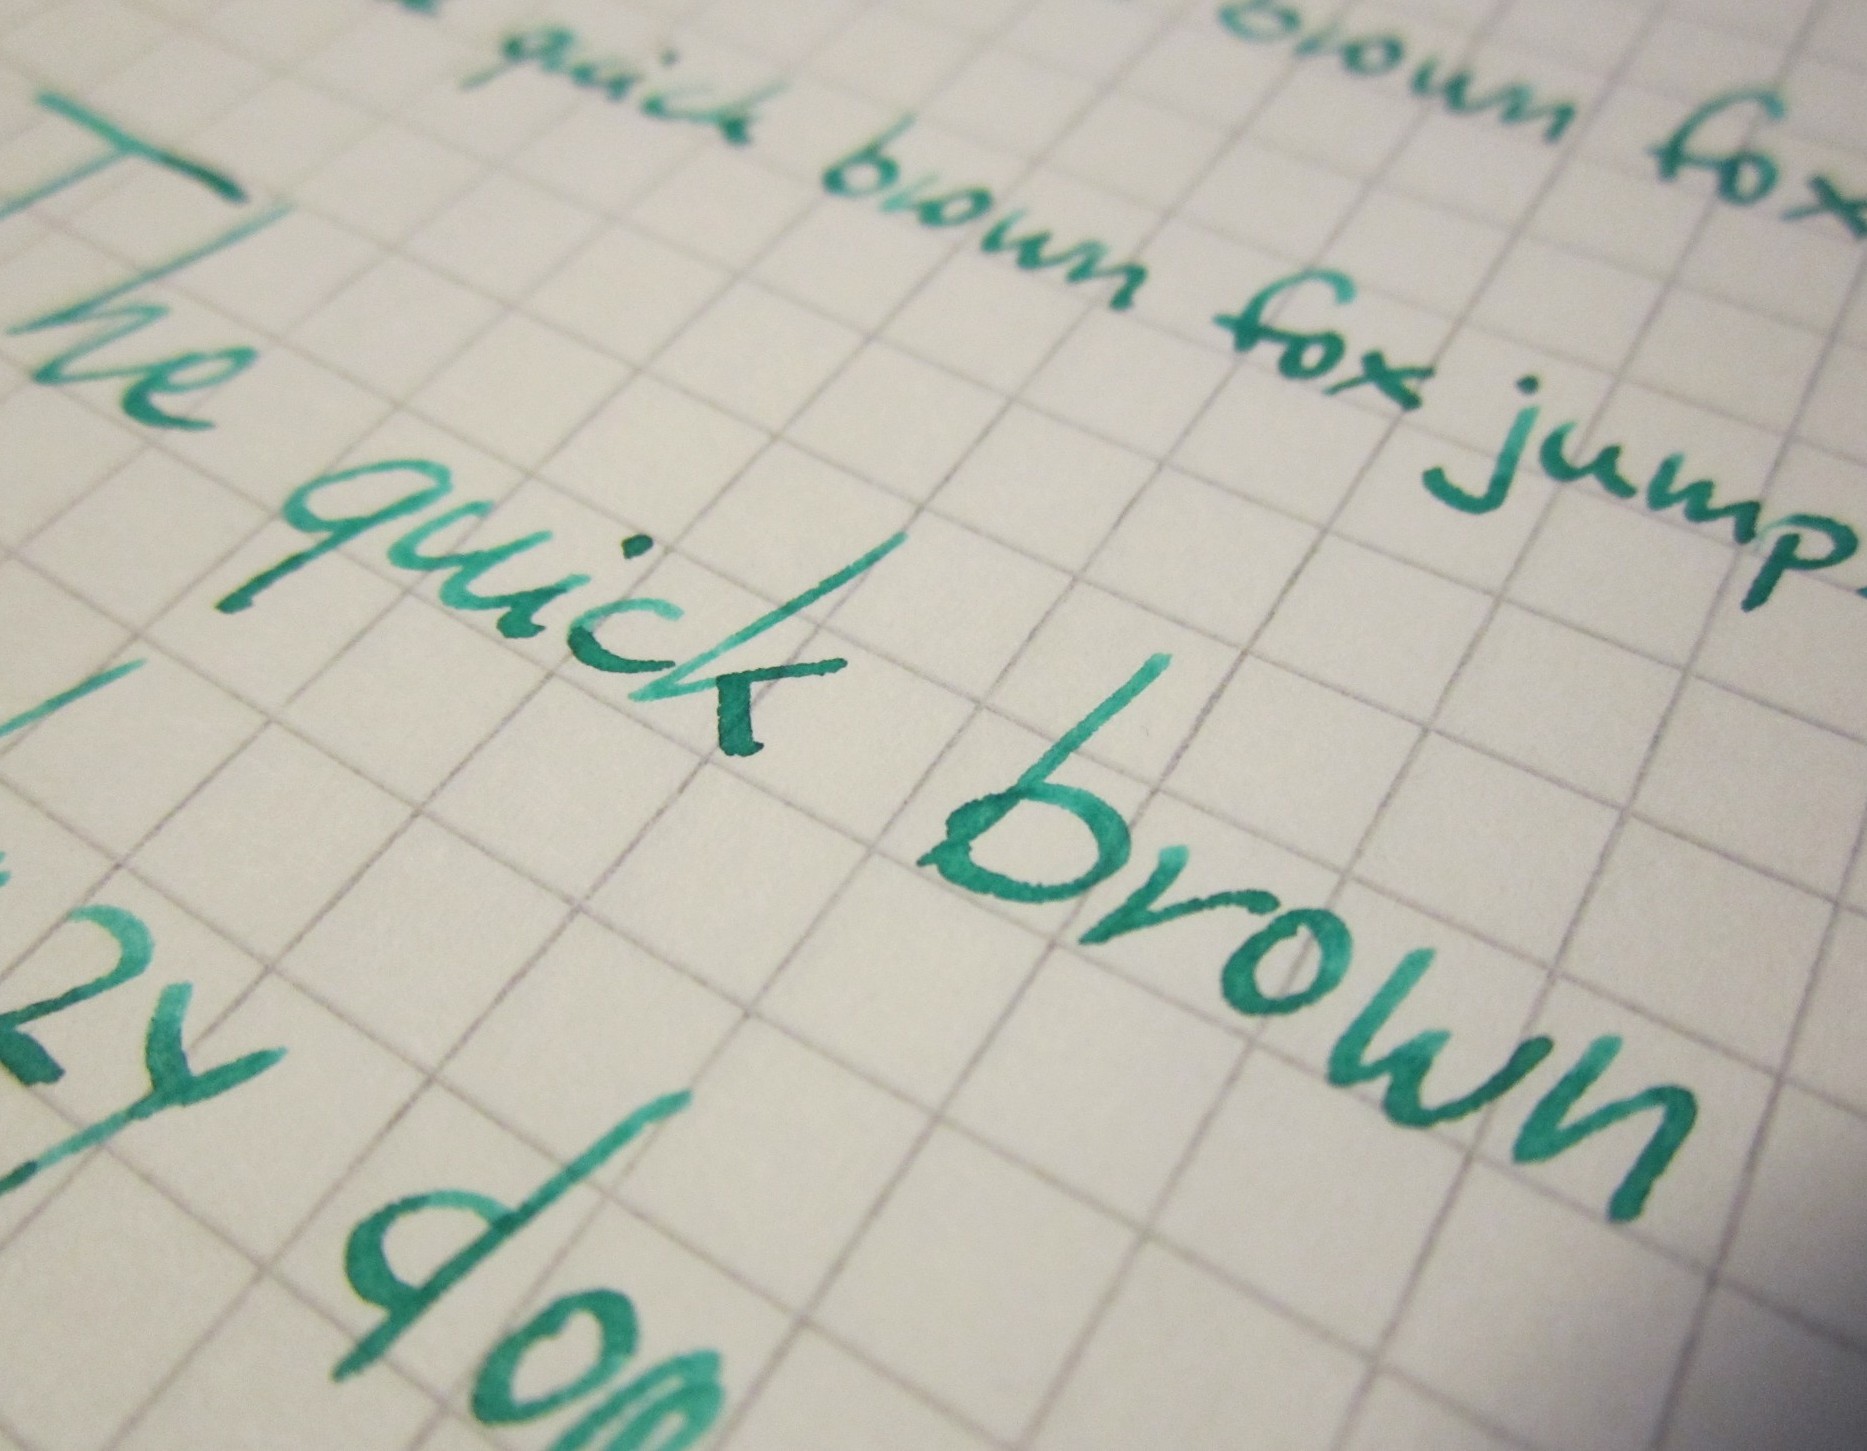 brown fox
quick brown fox jump
The quick brown
zy dog